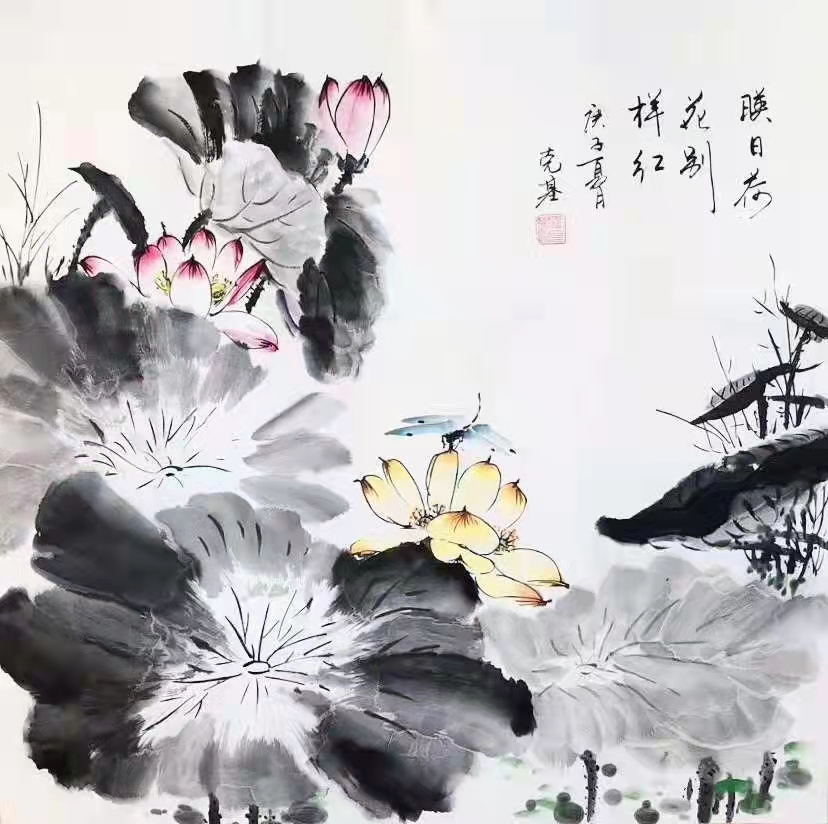 暎日荷
花别
样红
庚子夏月
克基